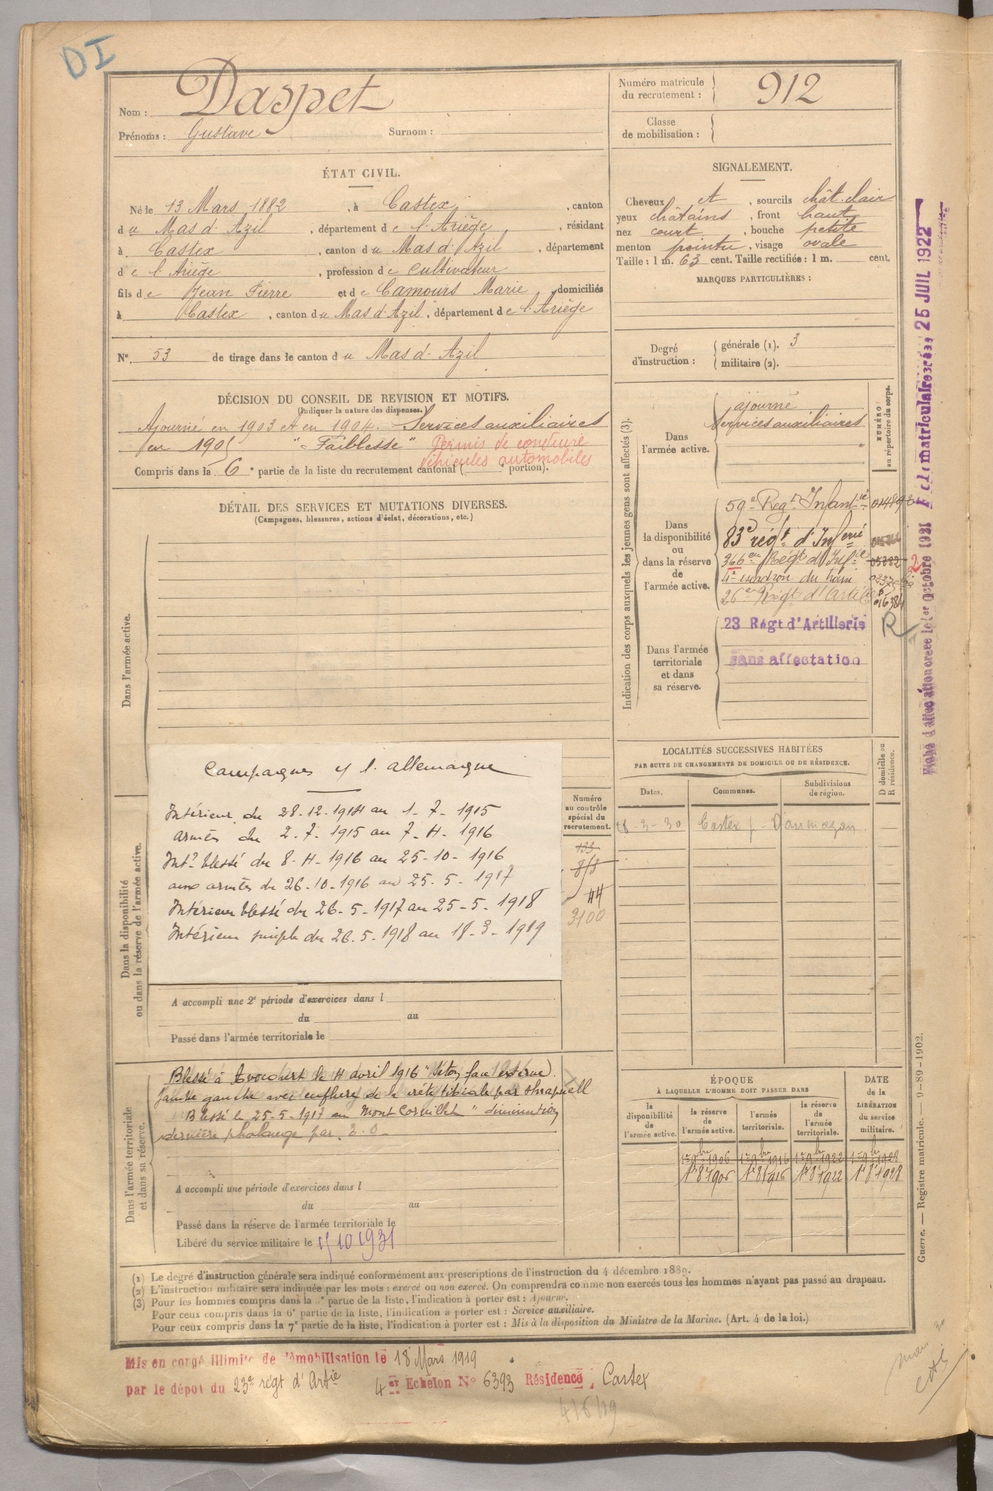 DI
Nom : Daspet
Prénoms : Gustave Surnom :
Numéro matricule du recrutement : 912
Classe de mobilisation :
ÉTAT CIVIL.
Né le 13 Mars 1882, à Castex, canton
du Mas d'Azil, département de l'Ariège, résidant
à Castex, canton du Mas d'Azil, département
de l'Ariège, profession de Cultivateur
fils de Jean Pierre et de Camours Marie, domiciliés
à Castex, canton du Mas d'Azil, département de l'Ariège
N° 53 de tirage dans le canton du Mas d'Azil
SIGNALEMENT.
Cheveux et, sourcils chât clair
yeux châtains, front haut
nez court, bouche petite
menton pointu, visage ovale
Taille : 1 m. 63 cent. Taille rectifiée : 1 m. cent.
MARQUES PARTICULIÈRES :
Degré d'instruction : générale (1). 3
militaire (2).
DÉCISION DU CONSEIL DE REVISION ET MOTIFS.
(Indiquer la nature des dispenses.)
Ajourné en 1903 et en 1904. Services auxiliaires
en 1905 "Faiblesse" Permis de conduire
véhicules automobiles
Compris dans la 6e partie de la liste du recrutement cantonal ( portion).
DÉTAIL DES SERVICES ET MUTATIONS DIVERSES.
(Campagnes, blessures, actions d'éclat, décorations, etc.)
Dans l'armée active.
Indication des corps auxquels les jeunes gens sont affectés (3).
NUMÉRO au répertoire du corps.
Dans l'armée active.
ajourné
Services auxiliaires
Dans la disponibilité ou dans la réserve de l'armée active.
59e Regt Infantie
83e régt d'Infrie
366e Régt d'Infie
4e escadron du train
26e Régt d'Artie
Dans l'armée territoriale et dans sa réserve.
23 Régt d'Artillerie
R
Sans affectation
Fiche matriculaire créée 25 JUIL 1922
Fiche d'affectation créée le 1er Octobre 1931
LOCALITÉS SUCCESSIVES HABITÉES
PAR SUITE DE CHANGEMENTS DE DOMICILE OU DE RÉSIDENCE.
Dates. Communes. Subdivisions de région. D domicile ou R résidence.
18-3-30 Castex Daumazan
Campagnes c/ l'allemagne
Intérieur du 28.12.1914 au 1-7-1915
armées du 2-7-1915 au 7-4-1916
Intr blessé du 8-4-1916 au 25-10-1916
aux armées du 26-10-1916 au 25-5-1917
Intérieur blessé du 26-5-1917 au 25-5-1918
Intérieur simple du 26-5-1918 au 18-3-1919
Numéro au contrôle spécial du recrutement.
44
3100
Dans la disponibilité ou dans la réserve de l'armée active.
A accompli une 2e période d'exercices dans l
du au
Passé dans l'armée territoriale le
Dans l'armée territoriale et dans sa réserve.
Blessé à Avocourt le 4 avril 1916 "
jambe gauche avec de la crête tibiale par shrapnell
Blessé le 25-5-1917 au Mont Cornillet "diminution
dernière phalange par
A accompli une période d'exercices dans l
du au
Passé dans la réserve de l'armée territoriale le
Libéré du service militaire le 15/10 1931
ÉPOQUE
À LAQUELLE L'HOMME DOIT PASSER DANS
la disponibilité de l'armée active. la réserve de l'armée active. l'armée territoriale. la réserve de l'armée territoriale.
DATE de la LIBÉRATION du service militaire.
1er 9bre 1906 1er 9bre 1916 1er 9bre 1922 1er 9bre 1928
1er 8bre 1905 1er 8bre 1916 1er 8bre 1922 1er 8bre 1928
Guerre. — Registre matricule. — 9-89-1902.
(1) Le degré d'instruction générale sera indiqué conformément aux prescriptions de l'instruction du 4 décembre 1889.
(2) L'instruction militaire sera indiquée par les mots : exercé ou non exercé. On comprendra comme non exercés tous les hommes n'ayant pas passé au drapeau.
(3) Pour les hommes compris dans la partie de la liste, l'indication à porter est : Ajourné.
Pour ceux compris dans la 6e partie de la liste, l'indication à porter est : Service auxiliaire.
Pour ceux compris dans la 7e partie de la liste, l'indication à porter est : Mis à la disposition du Ministre de la Marine. (Art. 4 de la loi.)
Mis en congé illimité de démobilisation le 18 Mars 1919
par le dépôt du 23e régt d'Artie 4er Echelon N° 6393 Résidence : Castex